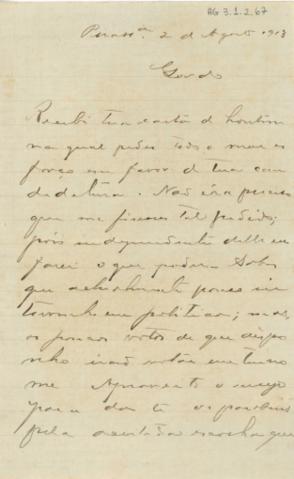 AG 3.1.2.67
Pirass.ª 2 de Agosto 1913
Gordo
Recebi tua carta d hontem
na qual pedes todo o meu es
forço em favor de tua can
didatura. Não éra preciso
que me fizesses tal pedido;
pois independente delle eu
farei o que poder. Sabes
que actualmente pouco in
tervenho em politica; mas,
os poucos votos de que dispo
nho irão votar em teu no
me Aproveito o ensejo
para dar te os parabens
pela acertada escolha que